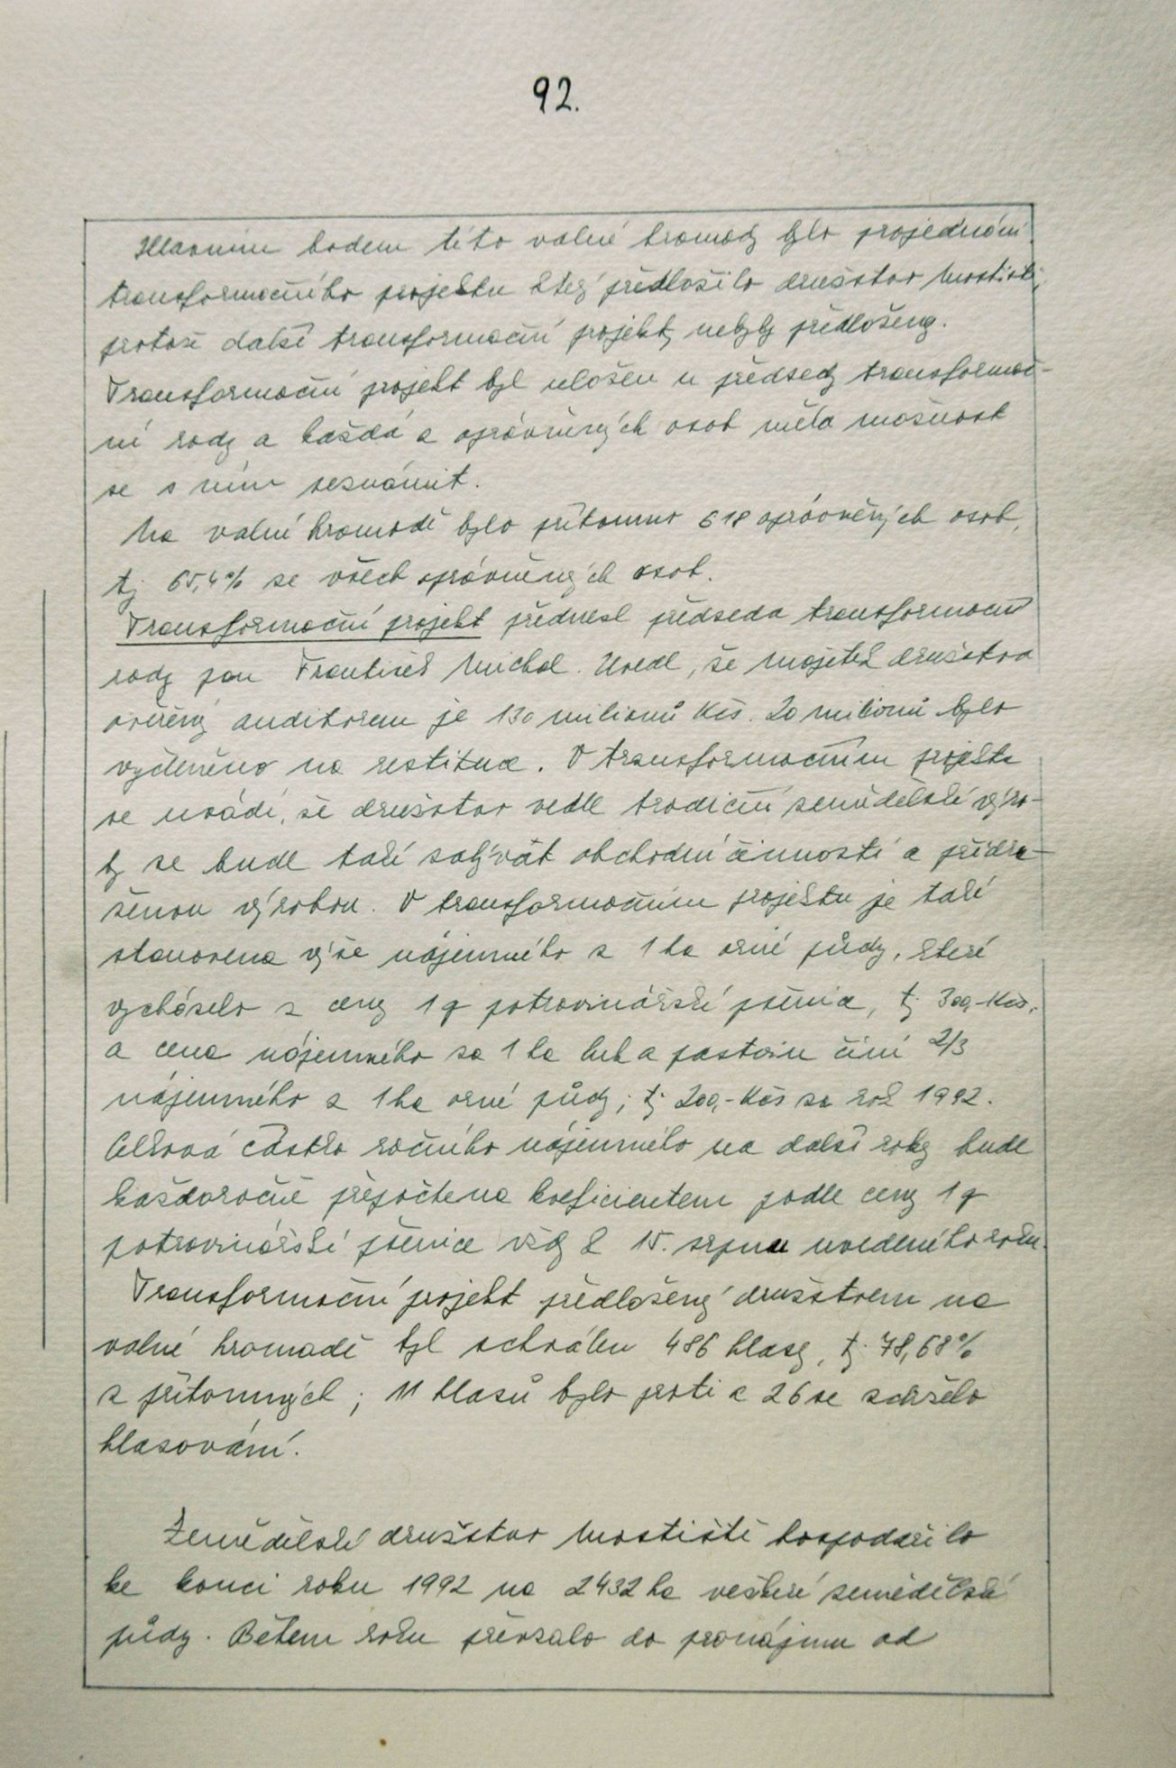 92.
Hlavním bodem této valné hromady bylo projednání
transformačního projektu který předložilo družstvo Mostiště,
protože další transformační projekty nebyly předloženy.
Transformační projekt byl uložen u předsedy transformač-
ní rady a každá z oprávněných osob měla možnost
se s ním seznámit.
Na valné hromadě bylo přítomno 618 oprávněných osob,
tj 65,4% ze všech oprávněných osob.
Transformační projekt přednesl předseda transformační
rady pan František Michal. Uvedl, že majetek družstva
ověřený auditorem je 130 milionů Kčs. 20 milionů bylo
vyčleněno na restituce. V transformačním projektu
se uvádí, že družstvo vedle tradiční zemědělské výro-
by se bude také zabývat obchodní činností a přidru-
ženou výrobou. V transformačním projektu je také
stanovena výše nájemného z 1 ha orné půdy, které
vycházelo z ceny 1 q potravinářské pšenice, tj 300,-Kčs,
a cena nájemného za 1 ha luk a pastvin činí 2/3
nájemného z 1 ha orné půdy, tj. 200,-Kčs za rok 1992.
Celková částka ročního nájemného na další roky bude
každoročně přepočtena koeficientem podle ceny 1 q
potravinářské pšenice vždy k 15. srpnu uvedeného roku.
Transformační projekt předložený družstvem na
valné hromadě byl schválen 486 hlasy, tj. 78,68%
z přítomných; 11 hlasů bylo proti a 26 se zdrželo
hlasování.
Zemědělské družstvo Mostiště hospodařilo
ke konci roku 1992 na 2432 ha veškeré zemědělské
půdy. Během roku převzalo do pronájmu od